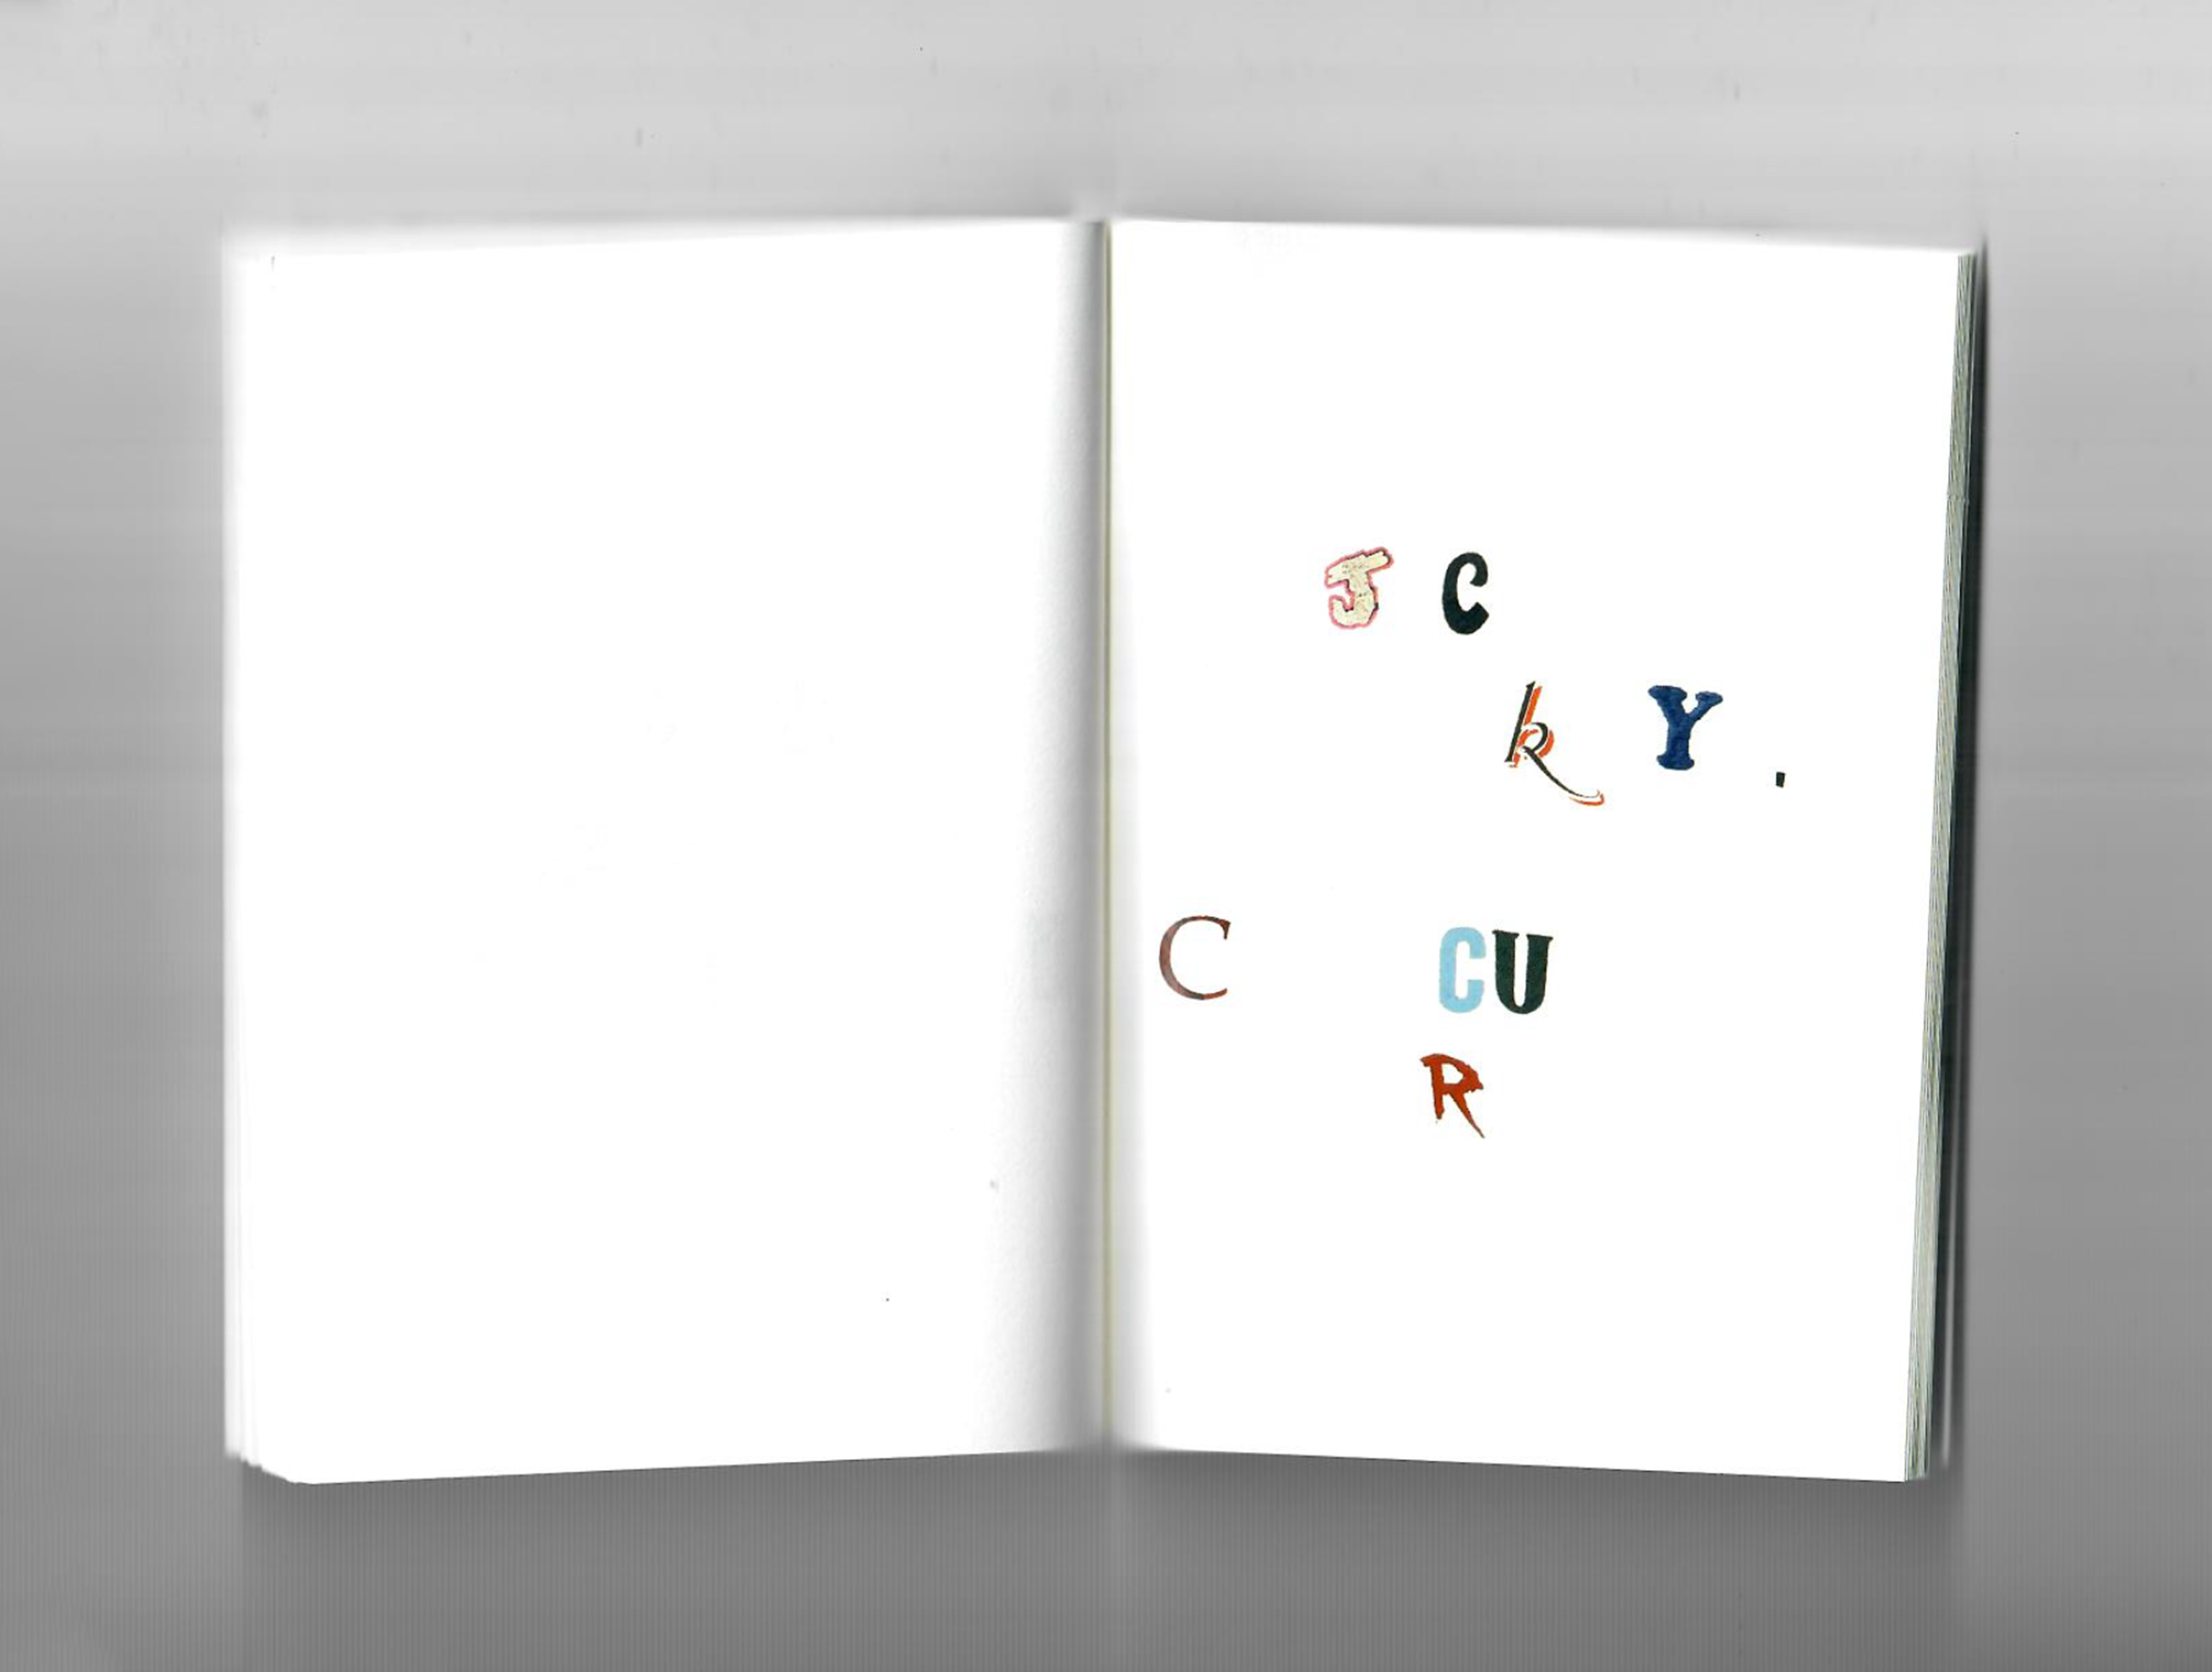 J C
k Y .
C CU
R